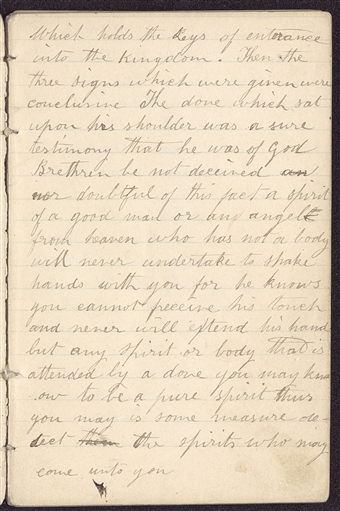 which holds the keys of enterance
into the kingdom. Then the
three signs which were given were
conclusive The dove which sat
upon his shoulder was a sure
testimony that he was of God
Brethrin be not deceived an
nor doubtful of this fact a spirit
of a good man or any angel
from heaven who has not a body
will never undertake to shake
hands with you for he knows
you cannot preceive his touch
and never will extend his hand
but any spirit or body that is
attended by a dove you may kno
ow to be a pure spirit thus
you may is some measure de-
dect them the spirits who may
come unto you